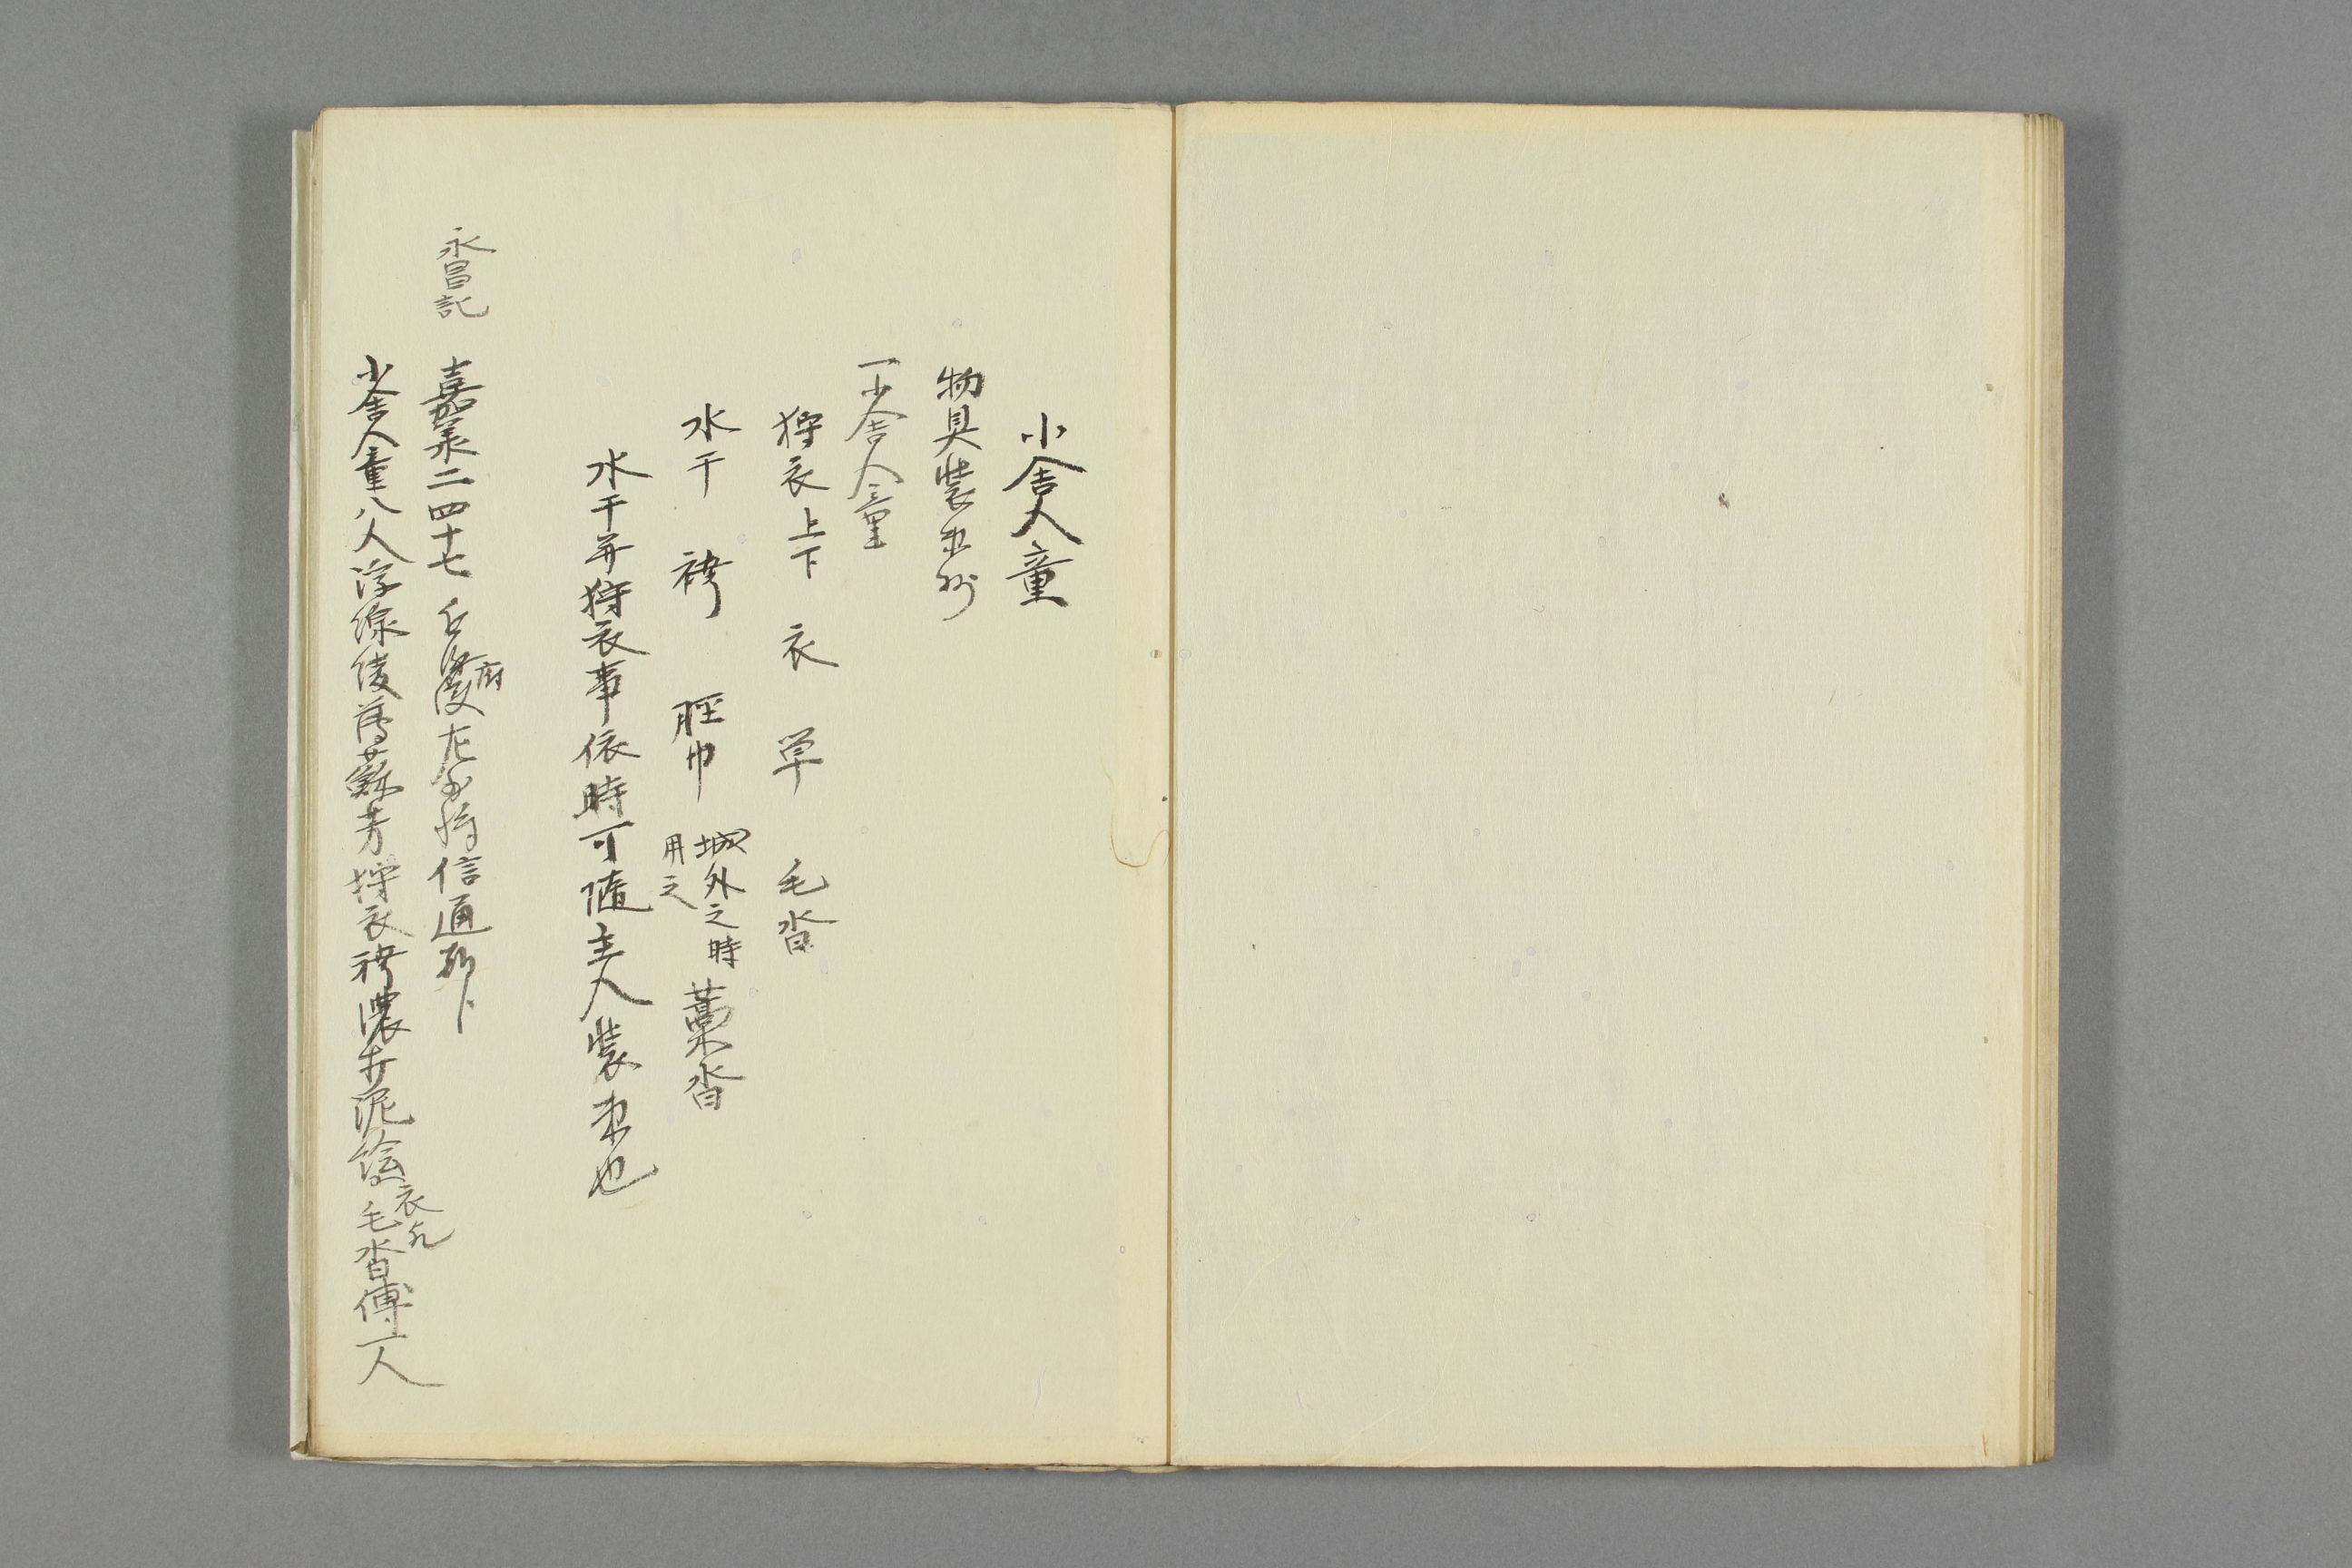 小舎人童
物具装束抄
一小舎人童
狩衣上下 衣 単 毛沓
水干 袴 脛巾 城外之時用之 藁沓
水干并狩衣事依時可随主人装束也
永昌記
嘉承二四十七 府 左少将信通
小舎人童八人浮線綾薄蘇芳狩衣袴濃打泥絵 衣 毛沓傅一人